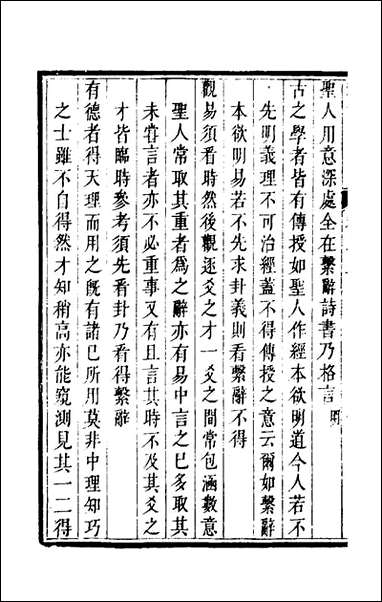 聖人用意深處全在繫辭詩書乃格言明
古之學者皆有傳授如聖人作經本欲明道今人若不
先明義理不可治經蓋不得傳授之意云爾如繫辭
本欲明易若不先求卦義則看繫辭不得
觀易須看時然後觀逐爻之才一爻之間常包涵數意
聖人常取其重者為之辭亦有易中言之已多取其
未嘗言者亦不必重事又有且言其時不及其爻之
才皆臨時參考須先看卦乃看得繫辭
有德者得天理而用之既有諸己所用莫非中理知巧
之士雖不自得然才知稍高亦能窺測見其一二得